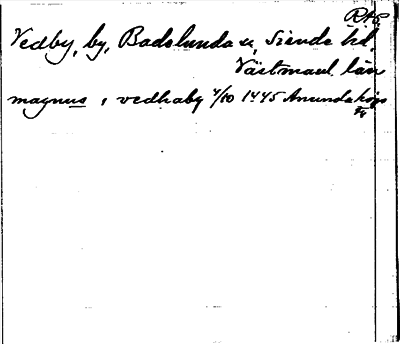 RAP.
Vedby, by, Badelunda sn, Siende hd,
Västmanl. län
magnus i vedhaby 4/10 1445 Anundshögs